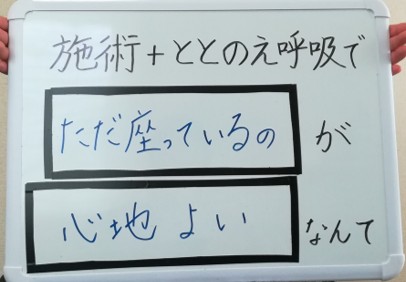 施術+ととのえ呼吸で
ただ座っているの が
心地よい なんて